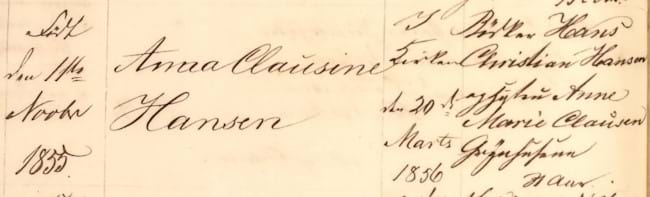 Født
den 11te
Novbr
1855.
Anna Clausine
Hansen
I
Kirken
den 20 d.
Marts
1856
Bødker Hans
Christian Hansen
og Hustru Anne
Marie Clausen
31 Aar.